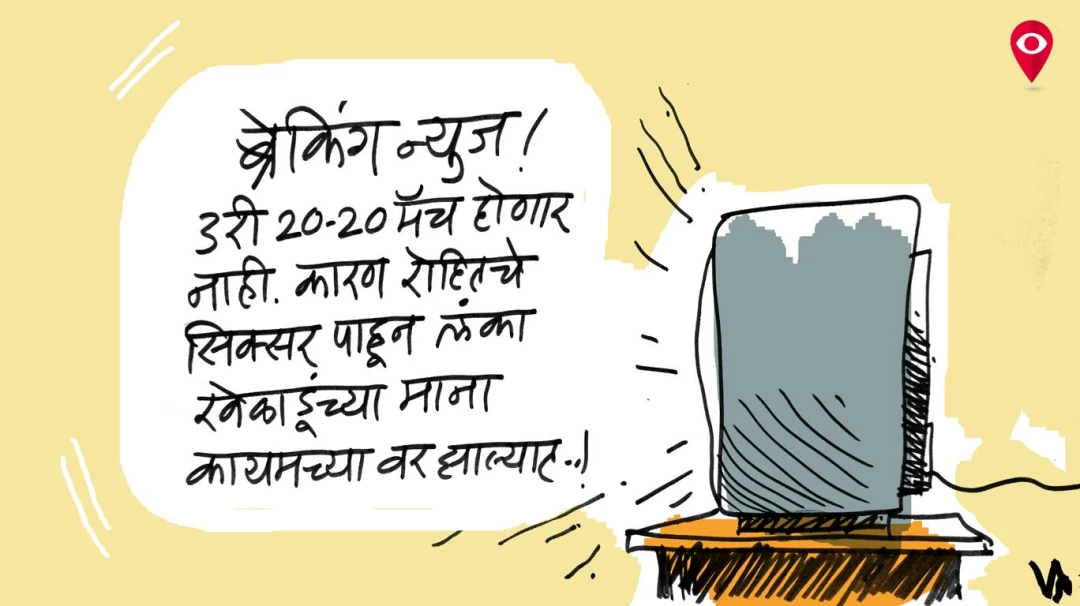 ब्रेकिंग न्युज!
३री 20-20 मॅच होणार
नाही. कारण रोहितचे
सिक्सर पाहून लंका
खेळाडूंच्या माना
कायमच्या वर झाल्यात..!